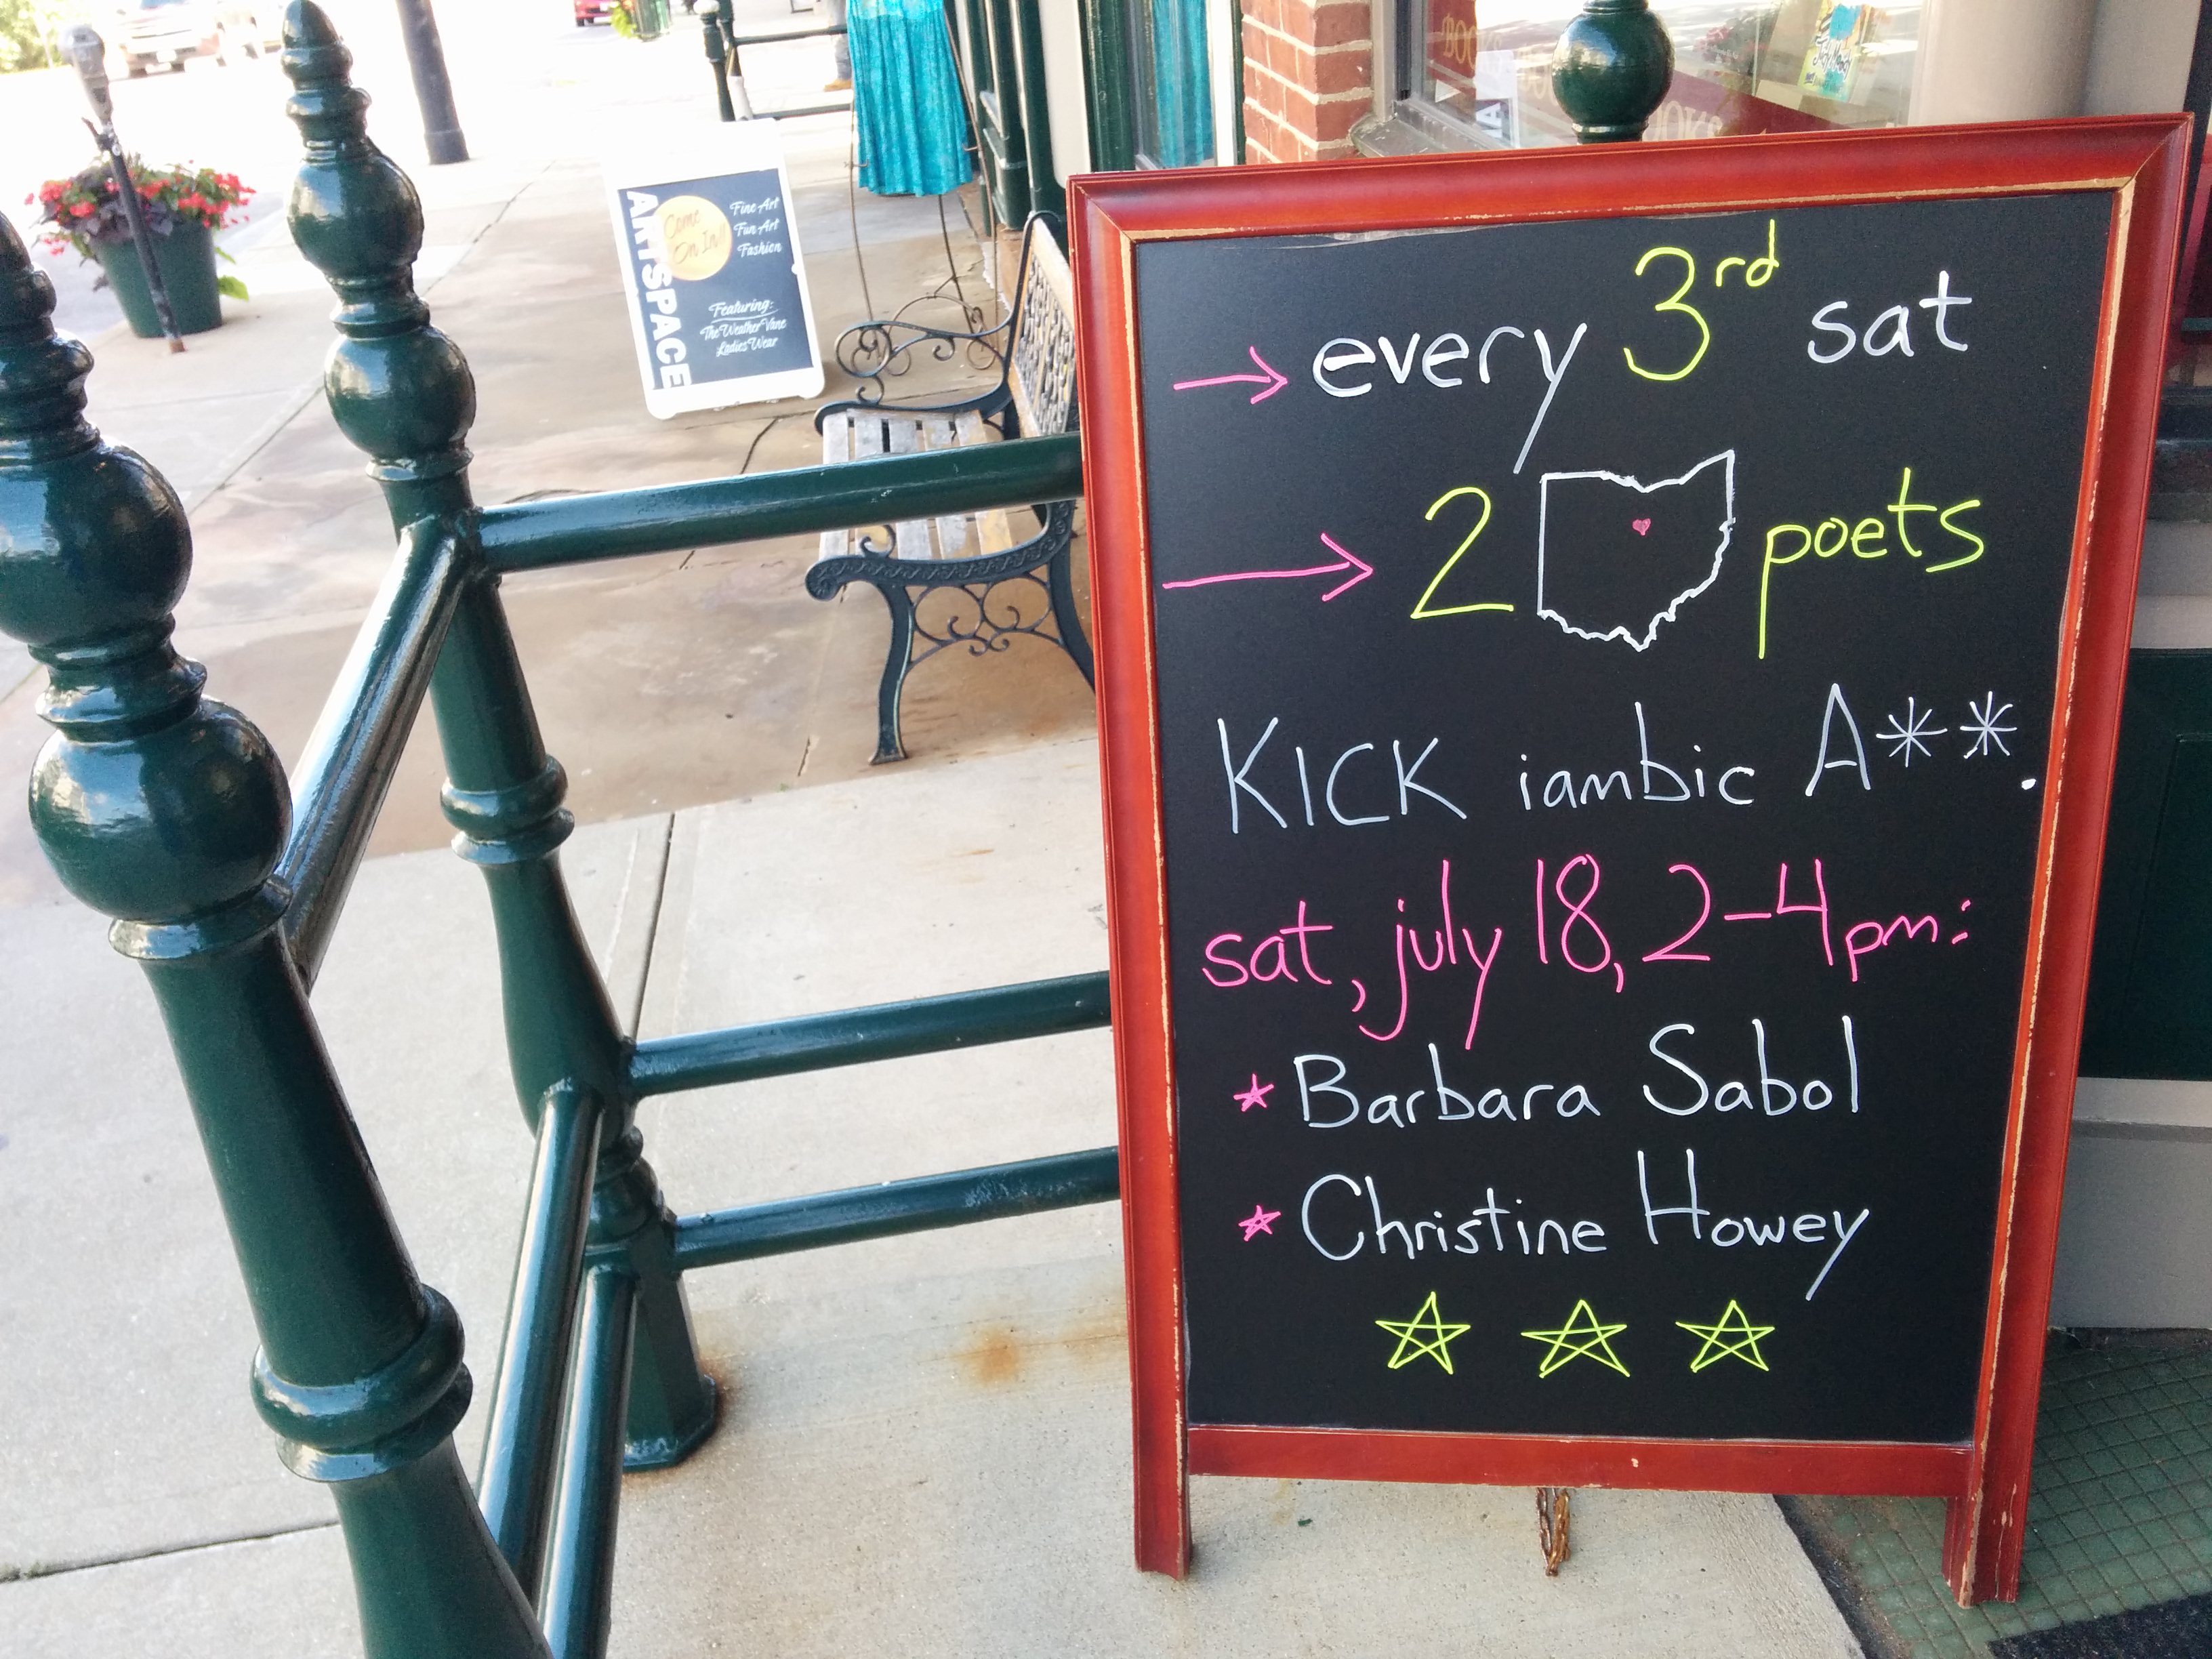 every 3rd sat
2 poets
KICK iambic A**.
sat, july 18, 2-4pm:
Barbara Sabol
Christine Howey
ARTSPACE
Come
On In!!
Fine Art
Fun Art
Fashion
Featuring:
The Weather Vane
Ladies Wear